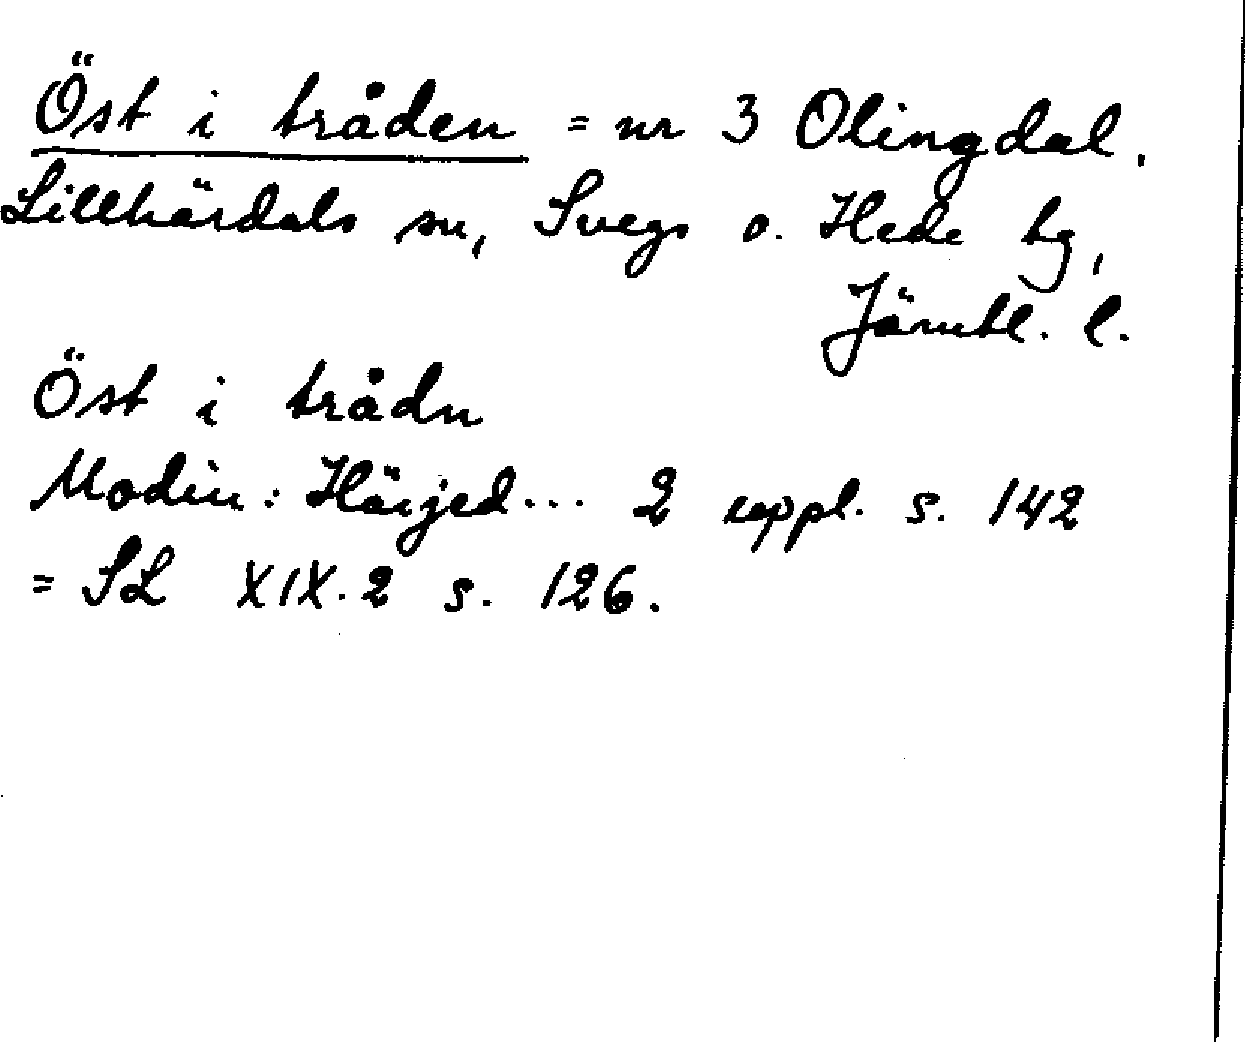 Öst i tråden = nr 3 Olingdal,
Lillhärdals sn, Svegs o. Hede tg,
Jämtl. l.
Öst i trådn
Modin: Härjed... 2 uppl. s. 142
= SL XIX.2 s. 126.